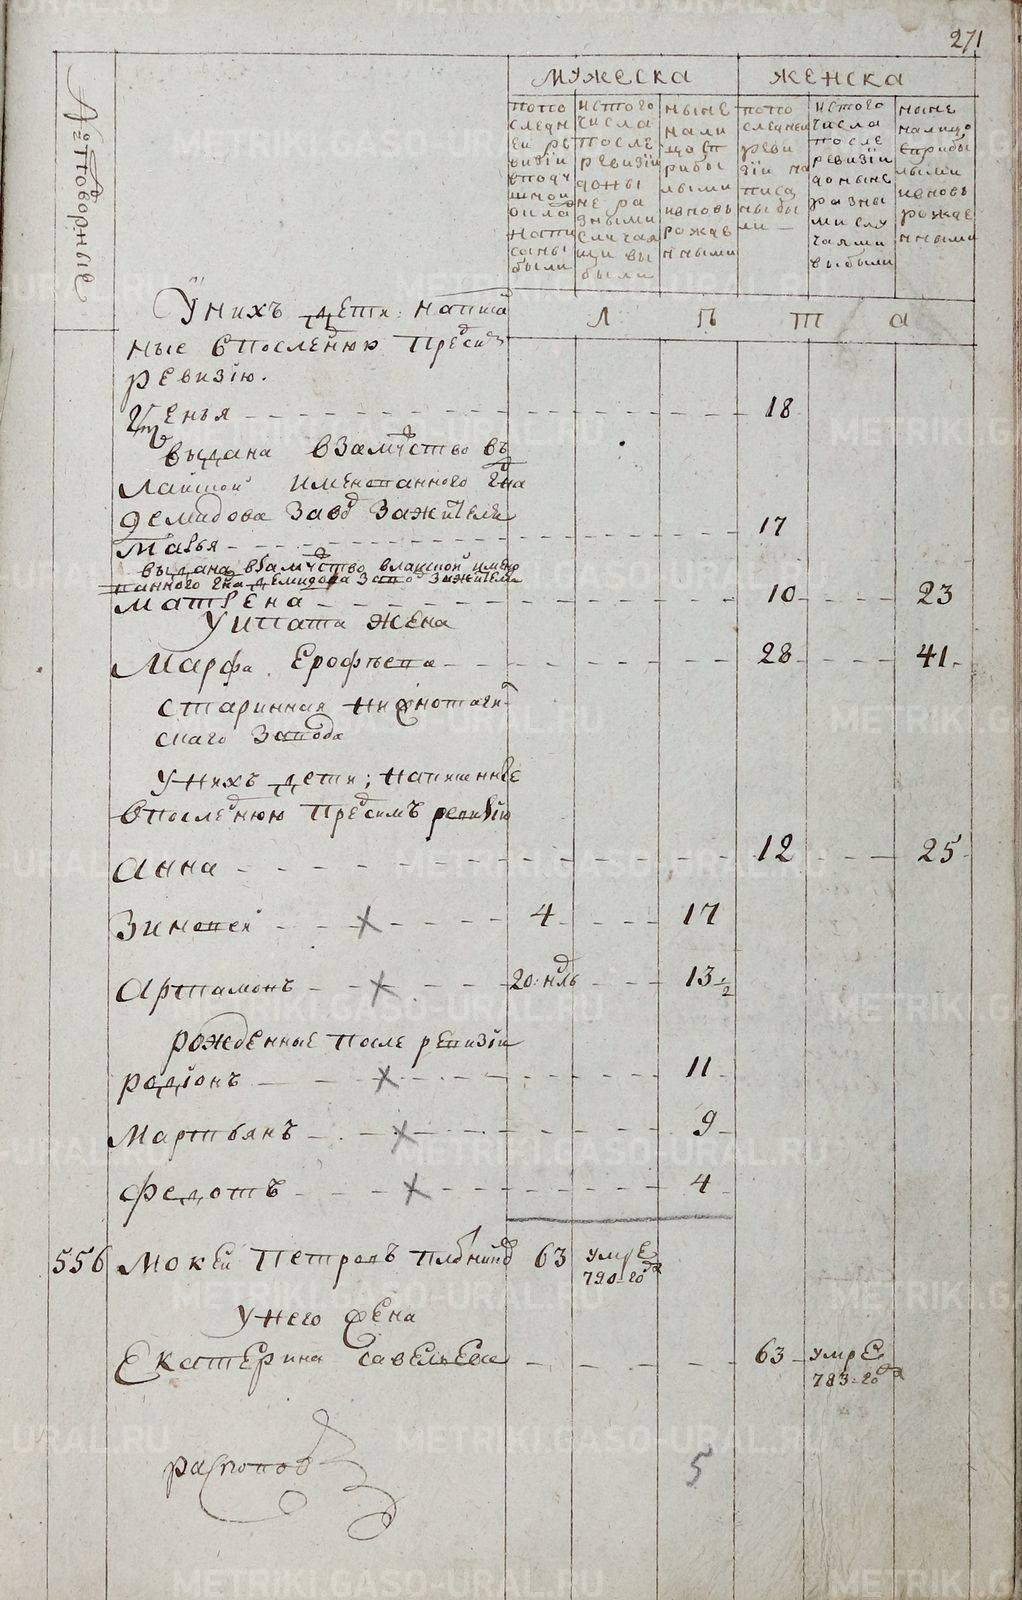 271
№ подворные
мужеска
женска
попо следней ревизии в подушной оклад написаны были
ис того числа после ревизии до ныне разными случаями выбыли
ныне налицо с прибылыми и вновь рожденными
по последней ревизии написаны были
ис того числа после ревизии до ныне разными случаями выбыли
ныне налицо с прибылыми и вновь рожденными
Л Ѣ т а
У нихъ дети: написа
ные в последнюю пред сим
ревизію.
18
выдана в замужство въ
лайской именованного гдна
Демидова завод за жителя
Марья 17
выдана в замужство в лайской имено
ванного гдна Демидова завод за жителя
Матрена 10 23
У Ипата жена
Марфа Ерофѣева 28 41
старинная нижнотаги
скаго завода
У нихъ дети; написанные
в последнюю пред симъ ревизію
Анна 12 25
Зиновей × 4 17
Артамонъ × 20: нѣдль 13 ½
рожденные после ревизіи
родіонъ × 11
Мартьянъ × 9
Федотъ × 4
556 Мокей Петровъ 63 умре
790 году
У него жена
Екатерина Савельева 63 умре
783 году
5
METRIKI.GASO-URAL.RU